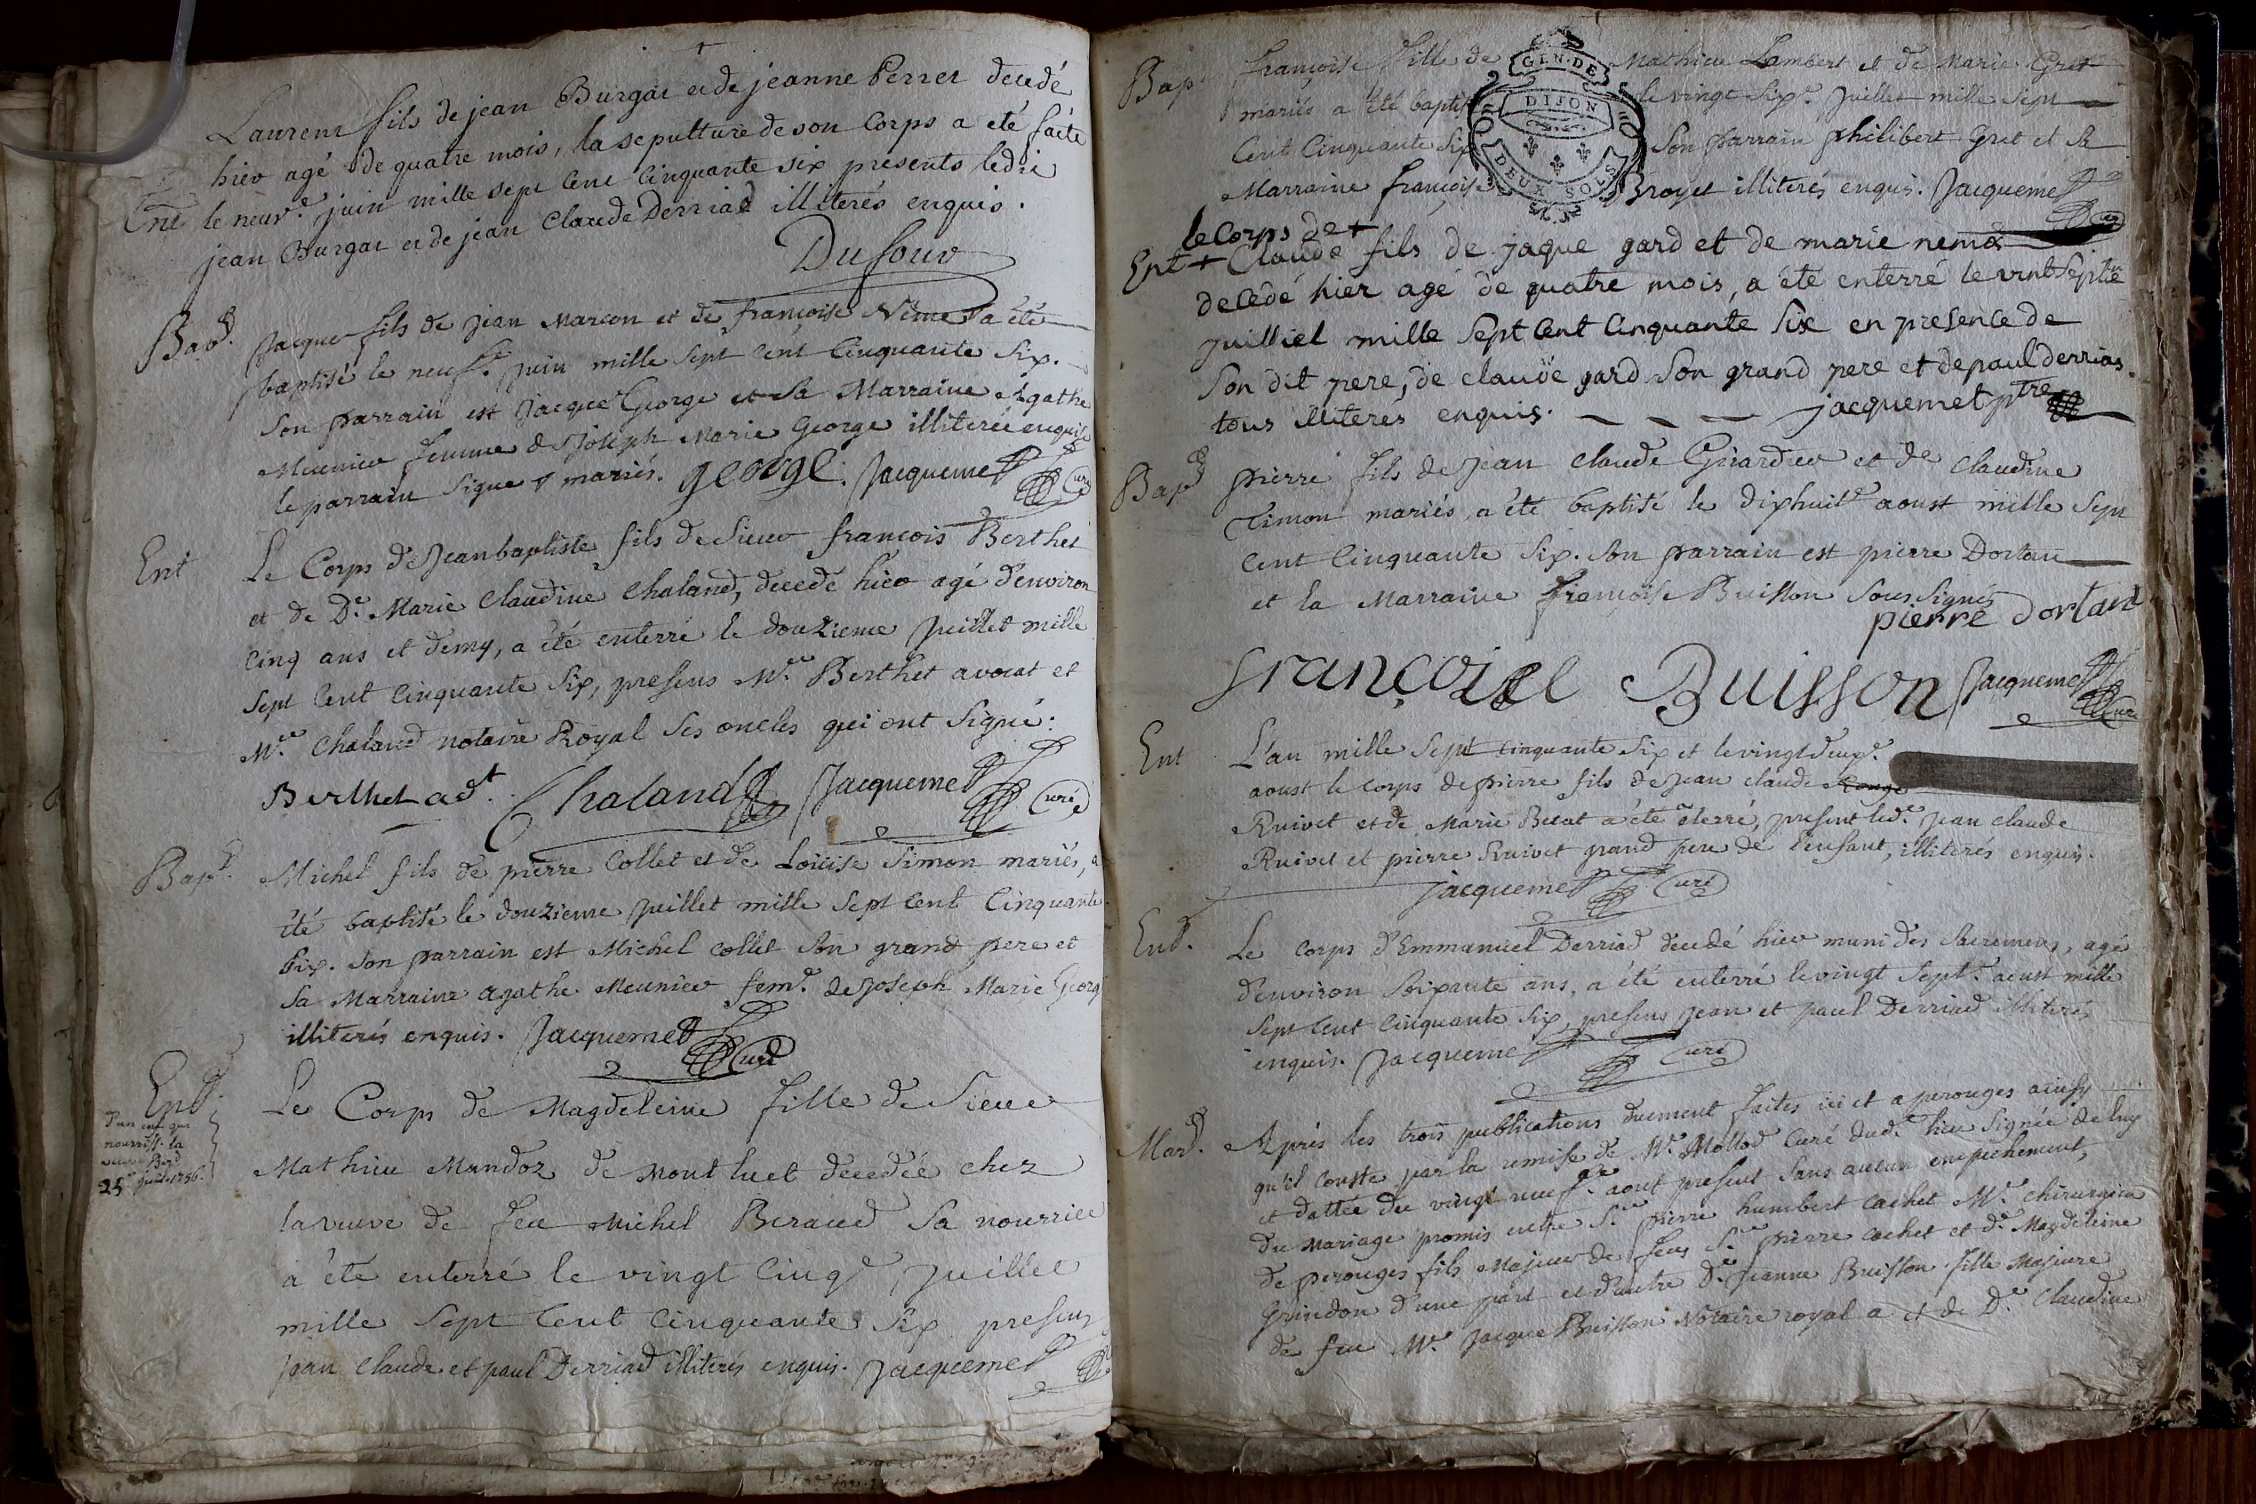 Laurent fils de jean Burgat et de jeanne Perret decedé
hier agé de quatre mois, la sepulture de son Corps a eté faite
Ent le neuv.e juin mille sept Cent Cinquante six presents ledit
jean Burgat et de jean Claude Derriad illiterés enquis.
Dufour
Bapt. Jacque fils de Jean Marcon et de françoise Nême a été
baptisé le neuf.e Juin mille Sept Cent Cinquante Six.
Son parrain est Jacque George et sa Marraine Agathe
Meunier femme de Joseph Marie George illiterée enquise
le parrain Signe mariés. george. Jacquemet Curé
Ent Le Corps de Jean baptiste fils de Sieur francois Berthet
et de D.e Marie Claudine Chaland, decedé hier agé d'environ
Cinq ans et demy, a été enterré le douzieme Juillet mille
Sept Cent Cinquante Six, presens M.re Berthet avocat et
M.re Chaland notaire Royal Ses oncles qui ont Signé.
Berthet adt. Chaland Jacquemet Curé
Bapt. Michel fils de pierre Collet et de Loüise Simon mariés, a
été baptisé le douzieme Juillet mille Sept Cent Cinquante
Six. Son parrain est Michel Collet Son grand pere et
Sa Marraine agathe Meunier fem.e de Joseph Marie Georg
illiterés enquis. Jacquemet Curé
Ent. Le Corps de Magdeleine fille de Sieur
D'un enf. que
nourriss. la
veuve Berd
25e juill. 1756.
Mathieu Mandoz de Montluel decedée chez
la veuve de feu Michel Beraud Sa nourrice
a été enterré le vingt Cinqe Juillet
mille Sept Cent Cinquante Six presens
Jean Claude et paul Derriad illiterés enquis. Jacquemet
Bapt françoise fille de Mathieu Lambert et de Marie Gret
mariés a été baptis le vingt Six.e Juillet mille Sept
Cent Cinquante Six Son parrain philibert Gret et Sa
Marraine françoise Broyet illiterés enquis. Jacquemet
GEN. DE
DIJON
DEUX SOLS
le Corps de +
Ent + Claude fils de jaque gard et de marie nemoz
decedé hier agé de quatre mois, a été enterré le vint Septie
juilliet mille Sept Cent Cinquante Six en presence de
Son dit pere, de claude gard Son grand pere et de paul derrias.
tous illiterés enquis. jacquemet ptre
Bapt pierre fils de Jean Claude Girardier et de Claudine
Timon mariés, a été baptisé le dixhuite aoust mille Sept
Cent Cinquante Six. Son parrain est pierre Dortan
et la Marraine françoise Buisson Sous Signés
pierre dortant
françoise Buisson Jacquemet Curé
Ent L'an mille Sept Cinquante Six et le vingtdeuxe.
aoust le Corps de pierre fils de Jean Claude
Ruivet et de Marie Berat a été éterré, present led.t Jean Claude
Ruivet et pierre Ruivet grand pere de l'enfant, illiterés enquis.
jacquemet Curé
Ent. Le Corps d'Emmanuel Derriad decedé hier muni des Sacremens, agé
d'environ Soixante ans, a été enterré le vingt Sept.e aoust mille
Sept Cent Cinquante Six, presens Jean et paul Derriad illiterés
enquis. Jacquemet Curé
Mar. Après les trois publications duement faites ici et a perouges ainsy
qu'il Conste par la remise de M.re Mollod Curé dud.t lieu Signée de luy
et dattée du vingt neuf.e aout present Sans aucun empechement,
du Mariage promis entre S.r pierre humbert Cachet M.re Chirurgien
de perouges fils Majeur de feu S.r pierre Cachet et d.e Magdeleine
Grindon d'une part et d'autre D.e Jeanne Buisson fille Majeure
de feu M.re Jacque Buisson Notaire royal a et de D.e Claudine